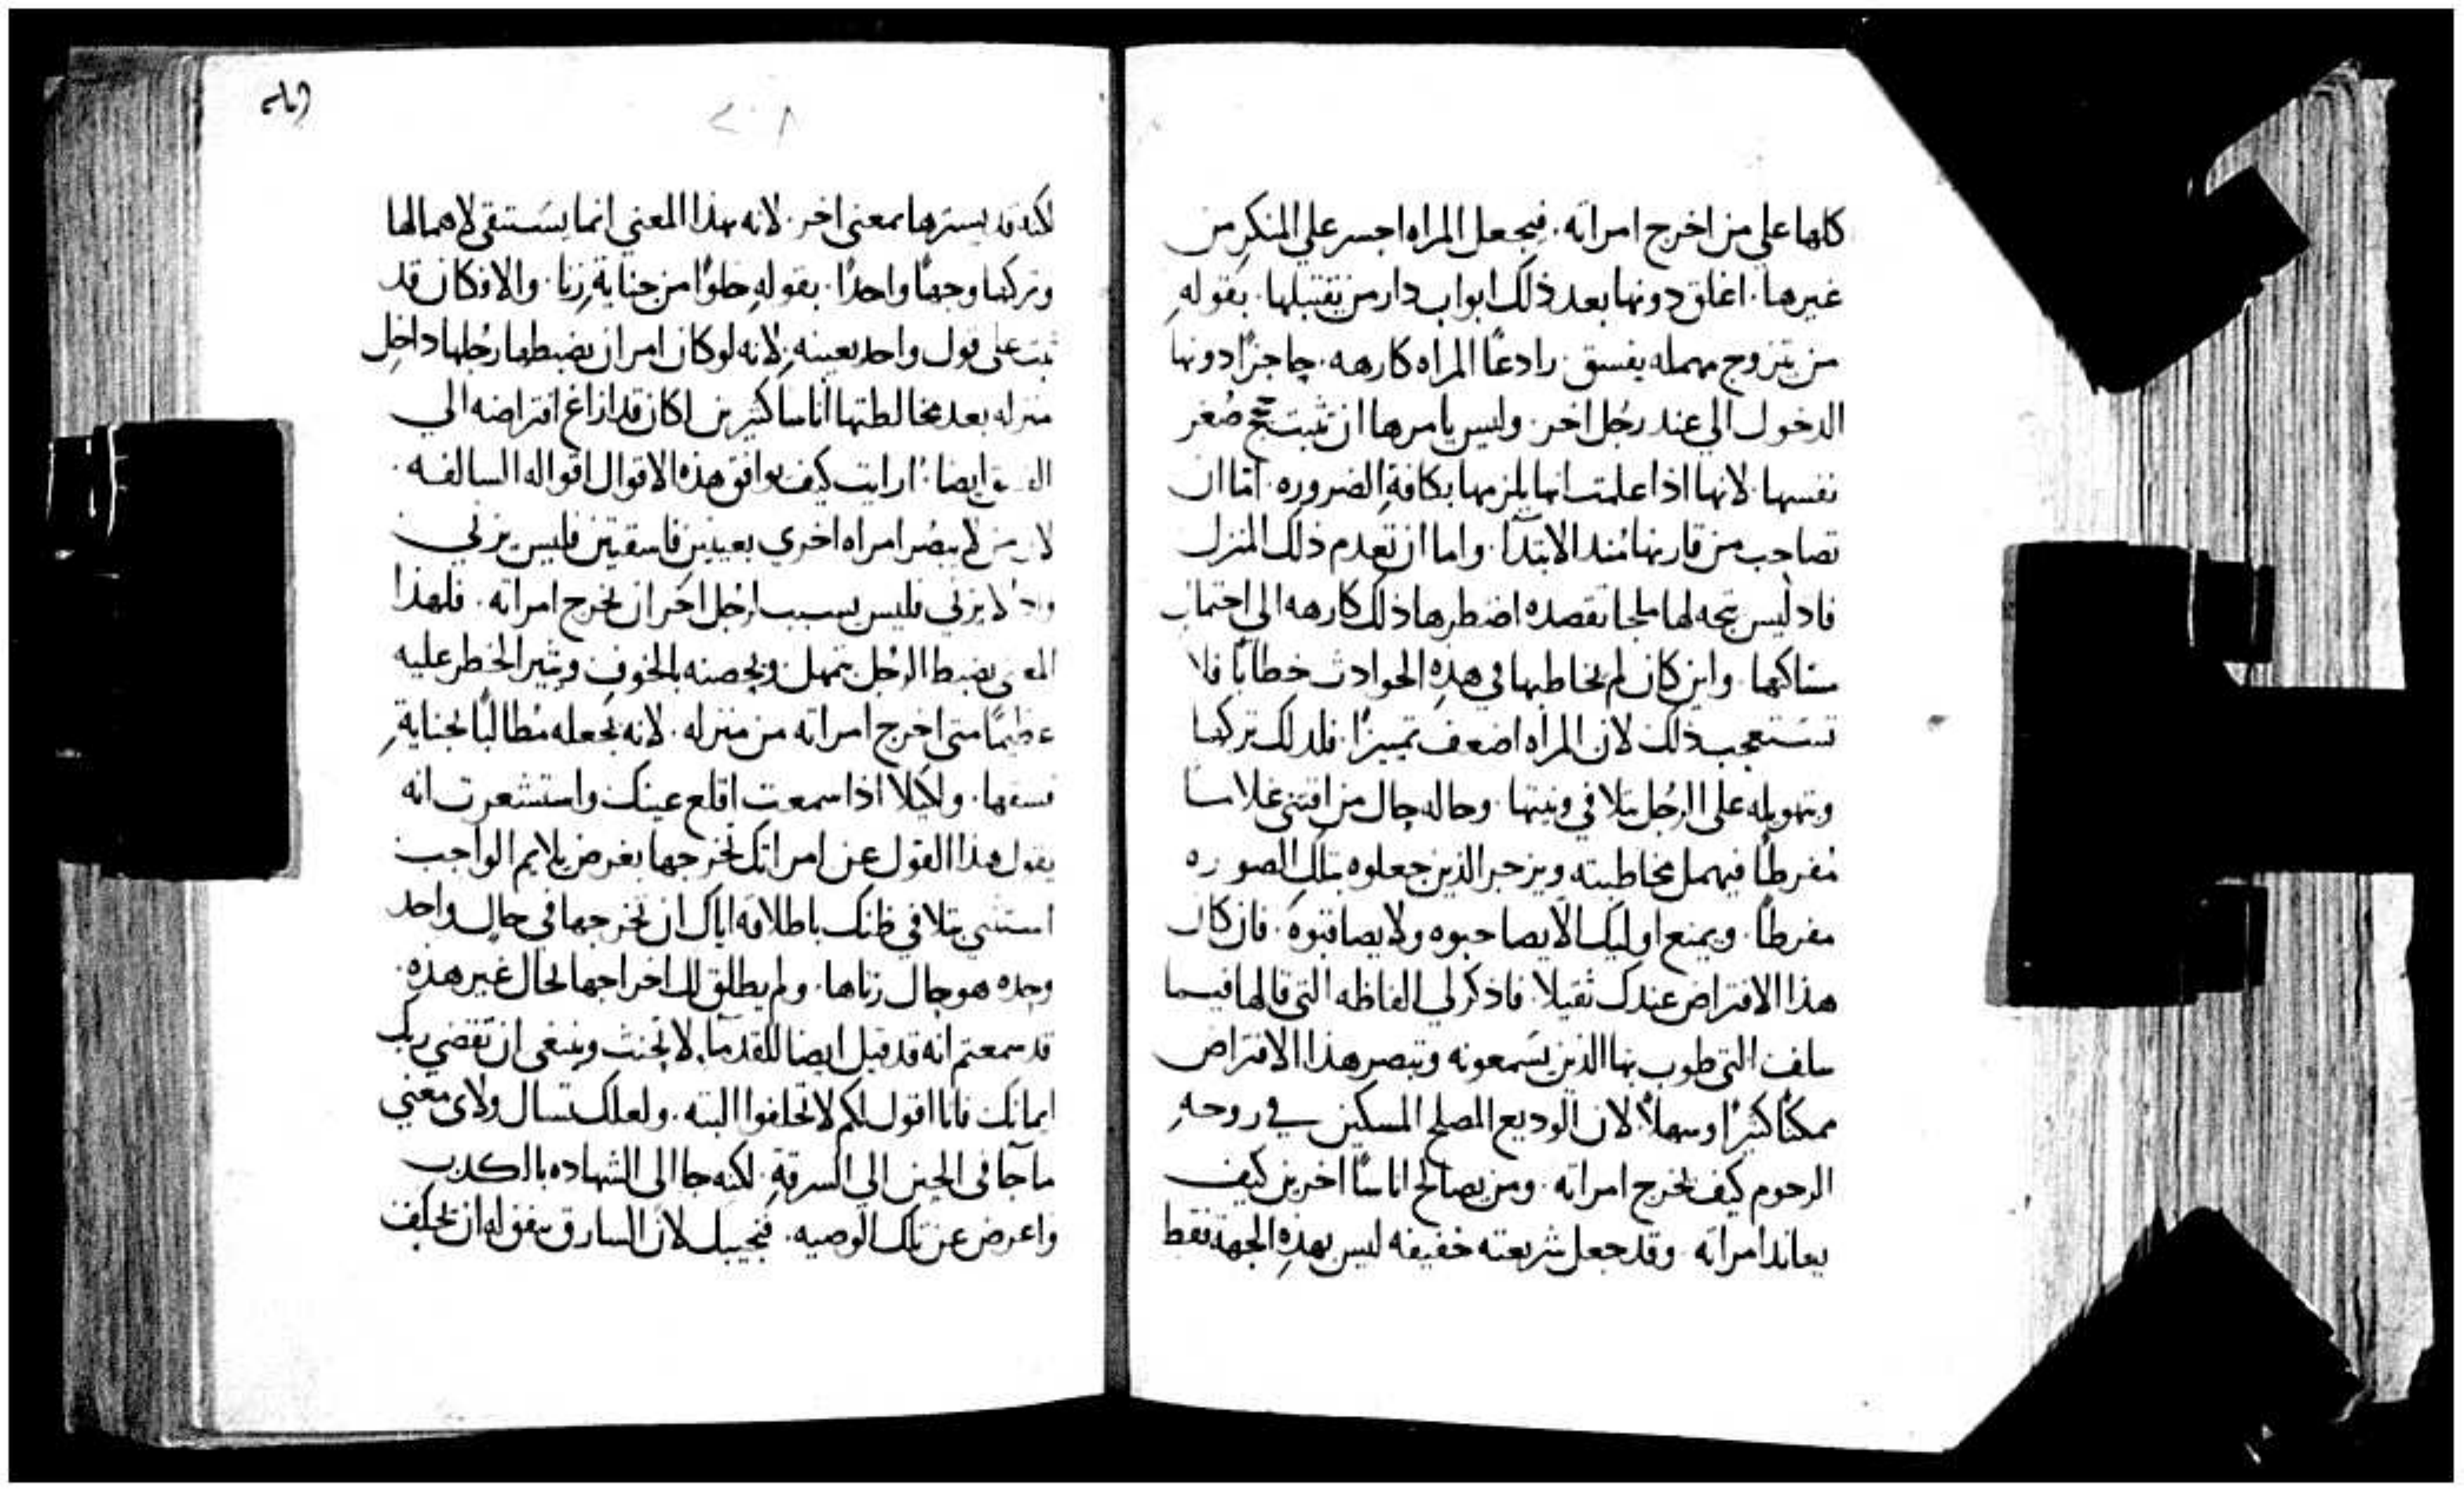 كلها على من اخرج امراته. فيجعل المراه اجسر على المنكر من
غيرها. اغلق دونها بعد ذلك ابواب دار من يقتبلها. بقوله
من يتزوج مهمله يفسق. رادعًا المراه كارهه. حاجزًا دونها
الدخول الي عند رجُل اخر. وليس يامرها ان تثبت صُغر
نفسها. لانها اذا علمت انها يلزمها بكافة الضروره. امّا ان
تصاحب من قارنها مُند الابتدآ. واما ان تعدم ذلك المنزل
فاد ليس يتجه لها ملجا تقصده اضطرها ذلك كارهه الى احتمال
مساكنها. واين كان لم يخاطبها في هذه الحوادث خطابًا فلا
تستعجب ذلك لان المراه اضعف تمييزًا. فلدلك تركها
وبتهويله على الرجُل يتلافي ونيتها. وحاله حال من اقتنى غلامًا
مُفرطًا فيهمل مخاطبته ويزجر الذين جعلوه بتلك الصوره
مفرطًا. ويمنع اوليك الا يصاحبوه ولا يصافتوه. فان كان
هذا الافتراض عندك ثقيلا. فاذكر لي الفاظه التي قالها فيما
سلف التي طوب بها الذين يسمعونه وتبصر هذا الافتراض
ممكنًا كثيرًا وسهلاً. لان الوديع المصلح المسكين في روحه
الرحوم كيف يخرج امراته. ومن يصالح اناسًا اخرين كيف
يعاند امراته. وقد جعل شريعته خفيفه ليس بهذه الجهة فقط
٢٠٨
لكنه قد يسترها بمعنى اخر. لانه بهذا المعني انما يستبقى لاهمالها
وتركها وجهًا واحدًا. بقوله خلوًا من جناية زنا. والا فكان قد
ثبت على قول واحد بعينه. لانه لو كان امر ان يضبطها رجُلها داخل
منزله بعد مخالطتها اناسا كثيرين لكان قد ازاغ افتراضه الي
الفسق ايضا. ارايت كيف يوافق هذه الاقوال اقواله السالفه.
لان من لا يبصُر امراه اخري بعينين فاسقتين فليس يزني
واذ لا يزني فليس يسبب لرجُل اخر ان يخرج امراته. فلهذا
المعنى يضبط الرجُل بتمهل ويحصنه بالخوف ويثير الخطر عليه
عظيمًا متى اخرج امراته من منزله. لانه يجعله مُطالبًا بجناية
فسقها. ولكيلا اذا سمعت اقلع عينك واستشعرت انه
يقول هذا القول عن امراتك تخرجها بغرض يلايم الواجب
استثني يتلافي ظنك باطلاقه اياك ان تخرجها في حال واحد
وحده هو حال زناها. ولم يطلق لك اخراجها لحال غير هذه.
قد سمعتم انه قد قيل ايضا للقدمآ. لا تحنث وينبغى ان تقضي ربك
ايمانك فانا اقول لكم لا تحلفوا البته. ولعلك تسال ولاى معنى
ما جآ في الحين الي السرقة. لكنه جا الى الشهاده بالكدب
واعرض عن تلك الوصيه. فنجيبك لان السارق يتفق له ان يحلف